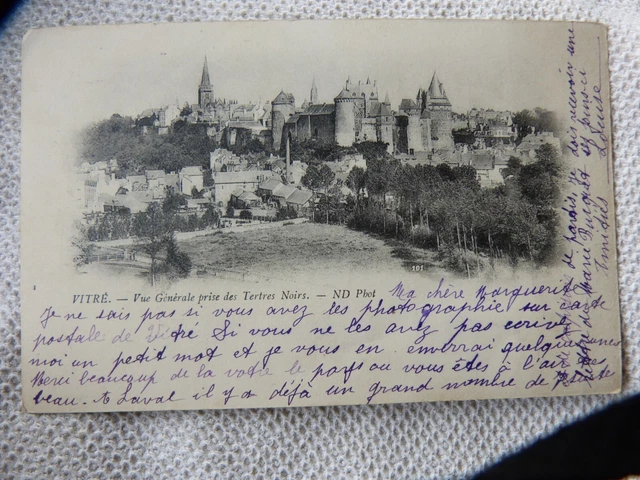 VITRÉ. — Vue Générale prise des Tertres Noirs. — ND Phot
101
Ma chère Marguerite
Je ne sais pas si vous avez les photographie sur carte
postale de Vitré Si vous ne les avez pas ecrive
moi un petit mot et je vous en enverrai quelques unes
Merci beaucoup de la votre le pays ou vous êtes à l'air
beau. A Laval il y a déjà un grand nombre de
pardis, je dois recevoir une
Marie ces jours-ci
Amitiés Louise